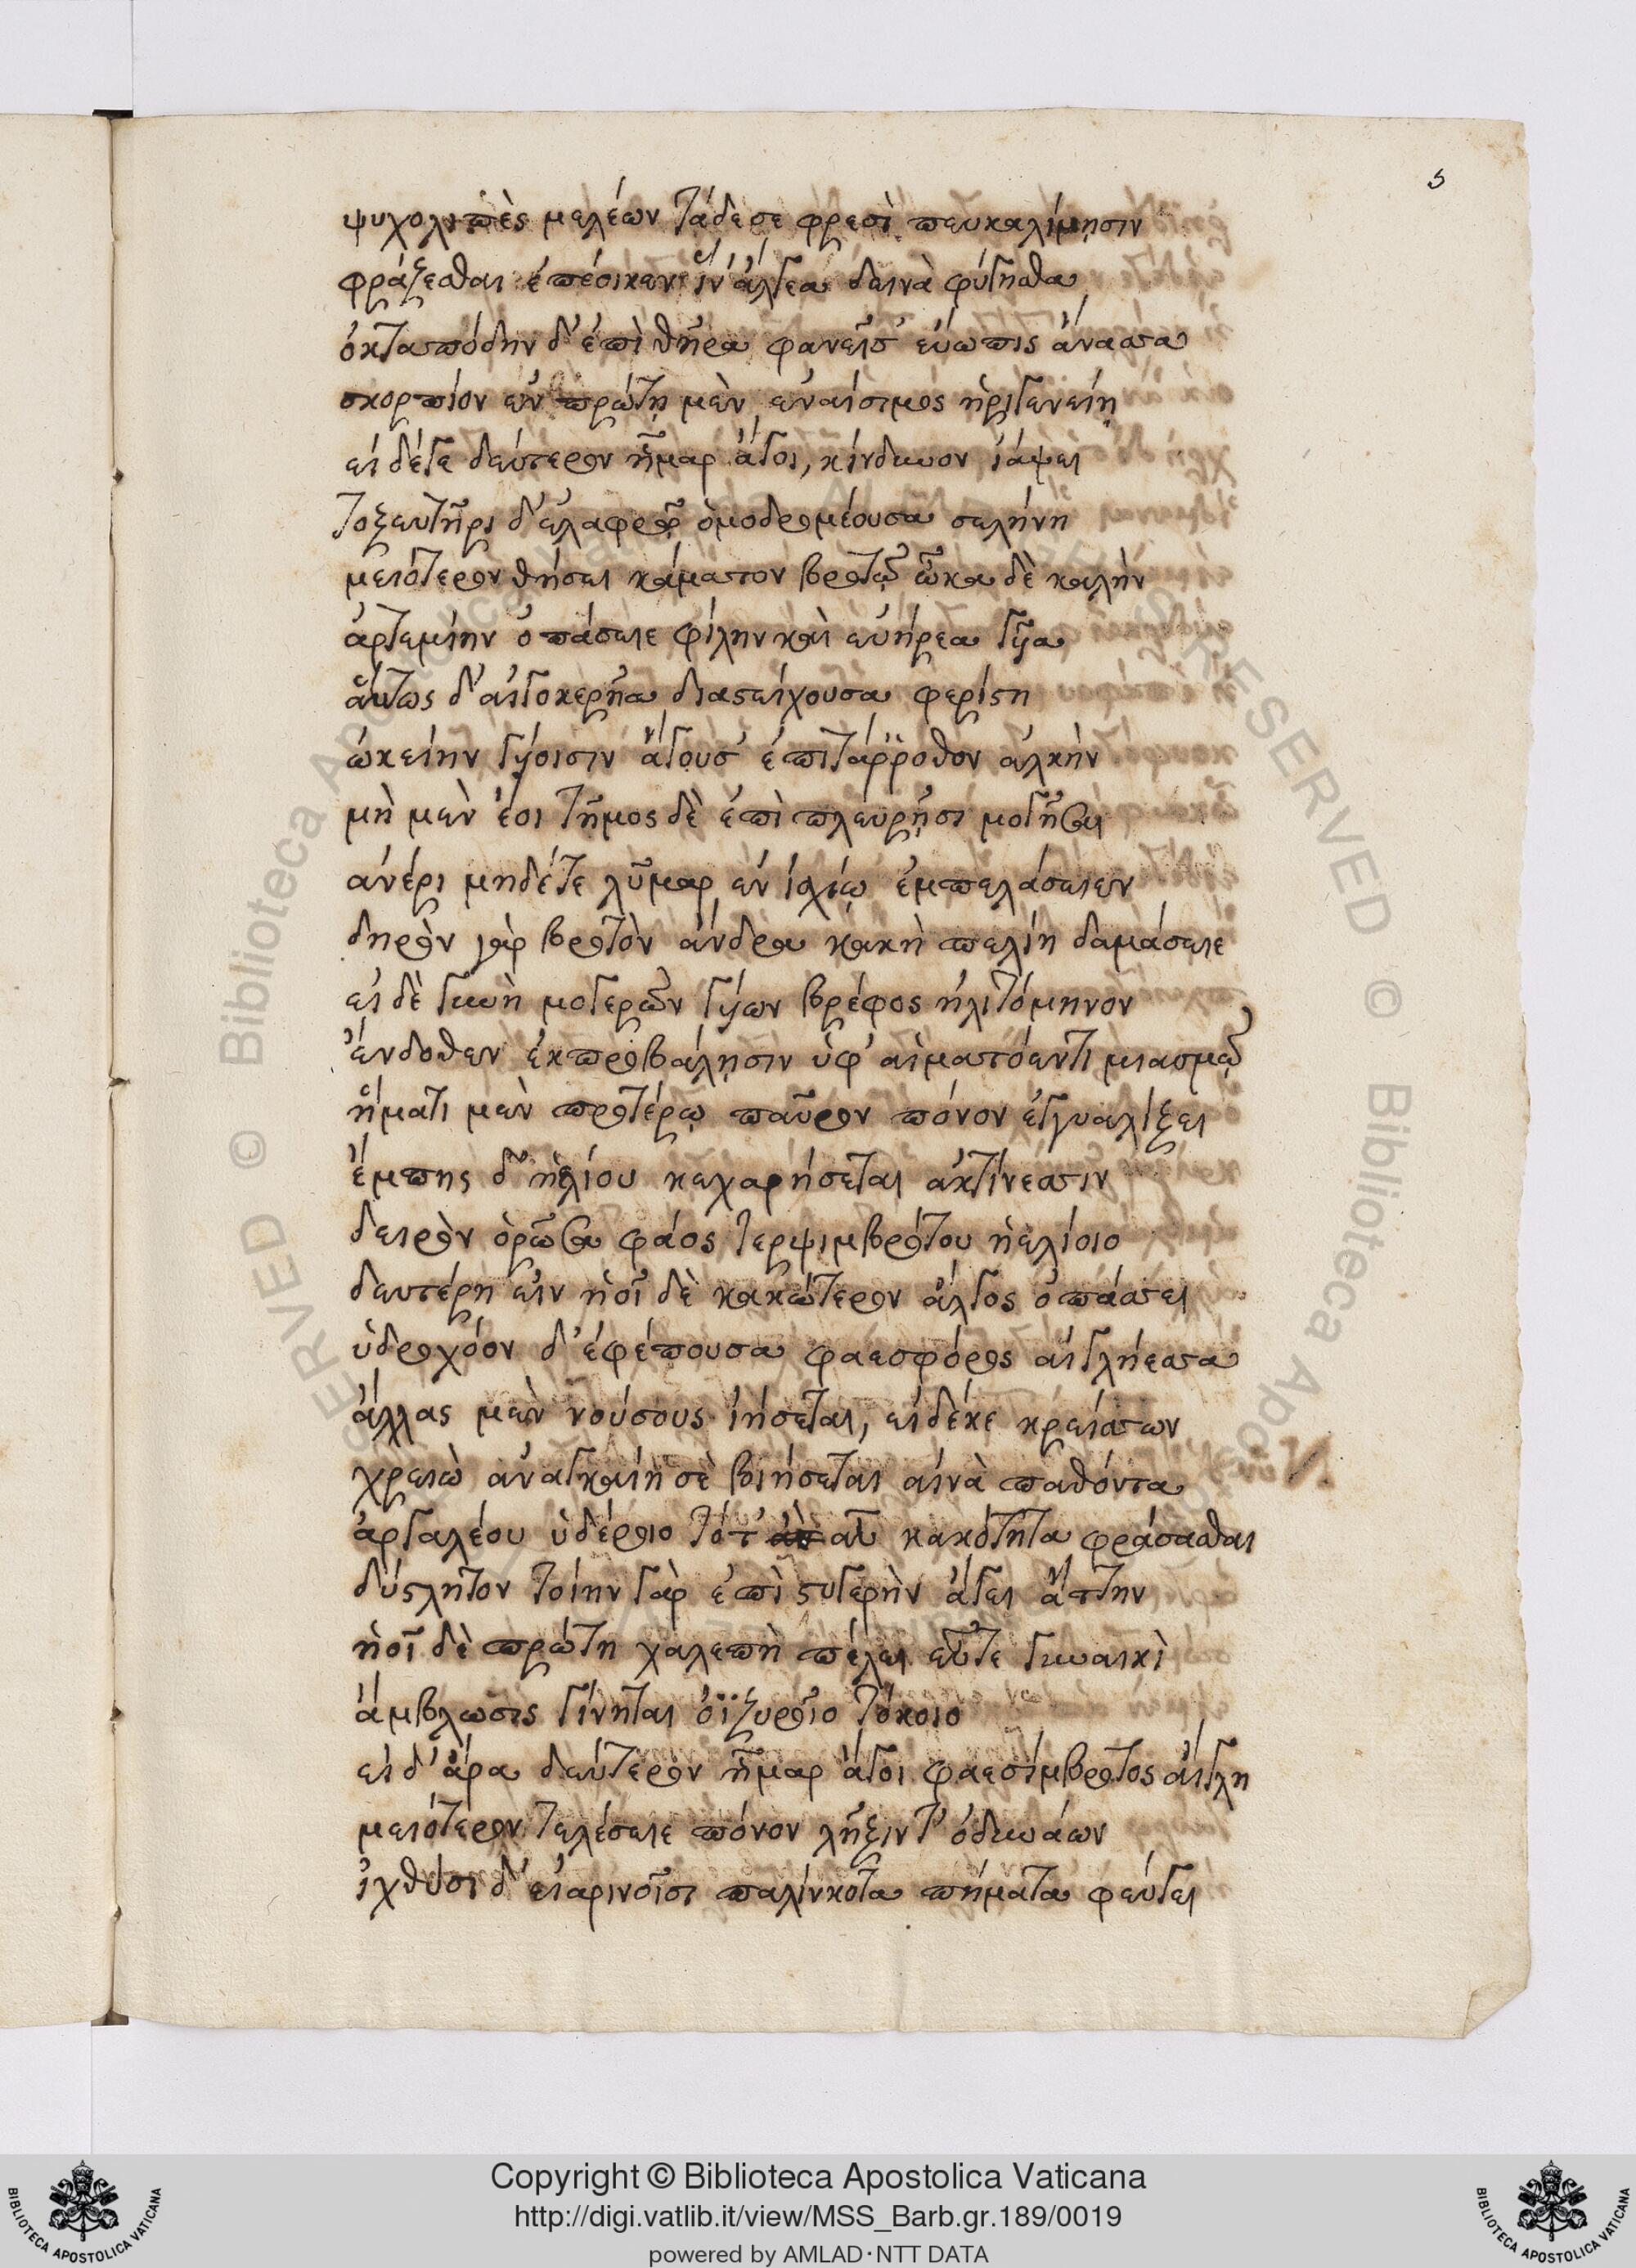 5
ψυχολιπὲς μελέων τάδε σε φρεσὶ πευκαλίμῃσιν
φράζεσθαι ἐπέοικεν ἵν' ἄλγεα δεινὰ φύγησθα
ὀκταπόδην δ' ἐπὶ θῆρα φανεῖσ' εὐῶπις ἄνασσα
σκορπίον ἐν πρώτῃ μὲν ἐναίσιμος ἠριγενείῃ
εἰ δέγε δεύτερον ἦμαρ ἄγοι, κίνδυνον ἰάψει
τοξευτῆρι δ' ἐλαφρῷ ὁμοδρομέουσα σελήνη
μειότερον θήσει κάματον βροτῷ ὦκα δὲ καλὴν
ἀρτεμίην ὀπάσειε φίλην καὶ εὐήρεα γῦα
αὔτως δ' αἰγοκερῆα διαστείχουσα φερίστη
ὠκείην γύοισιν ἄγουσ' ἐπιτάῤῥοθον ἀλκὴν
μὴ μὲν ἔοι τῆμος δὲ ἐπὶ πλευρῇσι μογῆσαι
ἀνέρι μηδέτε λῦμαρ ἐν ἰσχίῳ ἐμπελάσειεν
δηρὸν γὰρ βροτὸν ἄνδρα κακὴ πελίη δαμάσειε
εἰ δὲ γυνὴ μογερῶν γύων βρέφος ἠλιτόμηνον
ἔνδοθεν ἐκπροβάλῃσιν ὑφ' αἱματόεντι μιασμῷ
ἤματι μὲν προτέρῳ παῦρον πόνον ἐγγυαλίξει
ἔμπης δ' ἠελίου κεχαρήσεται ἀκτίνεσσιν
δειρὸν ὁρῶσα φάος τερψιμβρότου ἠελίοιο
δευτέρη εἰν ἠοῖ δὲ κακώτερον ἄλγος ὀπάσσει
ὑδροχόον δ' ἐφέπουσα φαεσφόρος αἰγλήεσσα
ἄλλας μὲν νούσους ἰήσεται, εἰ δέκε κρείσσων
χρειὼ ἀναγκαίη σὲ βιήσεται αἰνὰ παθόντα
ἀργαλέου ὑδέροιο τότ' αὖ κακότητα φράσασθαι
δύσλητον τοίην γὰρ ἐπὶ στυγερὴν ἄγει ἄτην
ἠοῖ δὲ πρώτη χαλεπὴ πέλει εὖτε γυναικὶ
ἄμβλωσις γίνηται ὀϊζυροῖο τόκοιο
εἰ δ' ἄρα δεύτερον ἦμαρ ἄγοι φαεσίμβροτος αἴγλη
μειότερον τελέσειε πόνον λῆξιν τ' ὀδυνάων
ἰχθύσι δ' εἰαρινοῖσι παλίνκοτα πήματα φεύγει
Copyright © Biblioteca Apostolica Vaticana
http://digi.vatlib.it/view/MSS_Barb.gr.189/0019
powered by AMLAD·NTT DATA